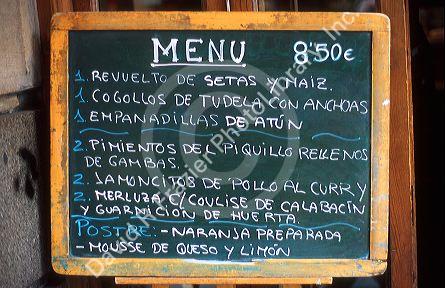 MENU 8'50€
1. REVUELTO DE SETAS Y MAIZ.
1. COGOLLOS DE TUDELA CON ANCHOAS
1. EMPANADILLAS DE ATÚN
2. PIMIENTOS DEL PIQUILLO RELLENOS
DE GAMBAS.
2. JAMONCITOS DE POLLO AL CURRY
2. MERLUZA C/ COULISE DE CALABACÍN
Y GUARNICIÓN DE HUERTA.
POSTRE: - NARANJA PREPARADA
- MOUSSE DE QUESO Y LIMÓN